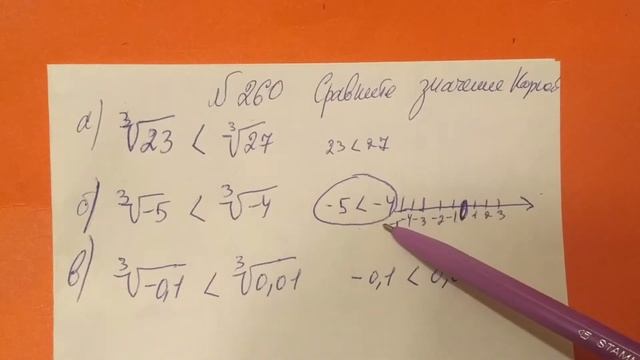 №260 Сравните значение Корней
а) ∛23 < ∛27 23 < 27
б) ∛-5 < ∛-4 -5 < -4 -4 -3 -2 -1 0 1 2 3
в) ∛-0,1 < ∛0,01 -0,1 < 0,
STAMM